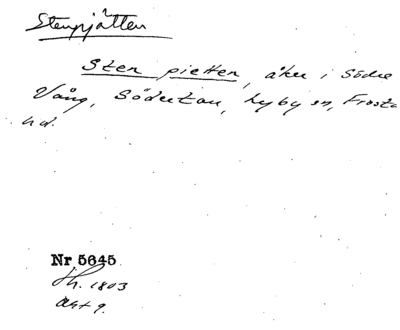 Stenpjätten
Sten pietten, åker i Södre
Vång, Södertau, Lyby sn, Frosta
hd.
Nr 5645
Th. 1803
Akt 9.